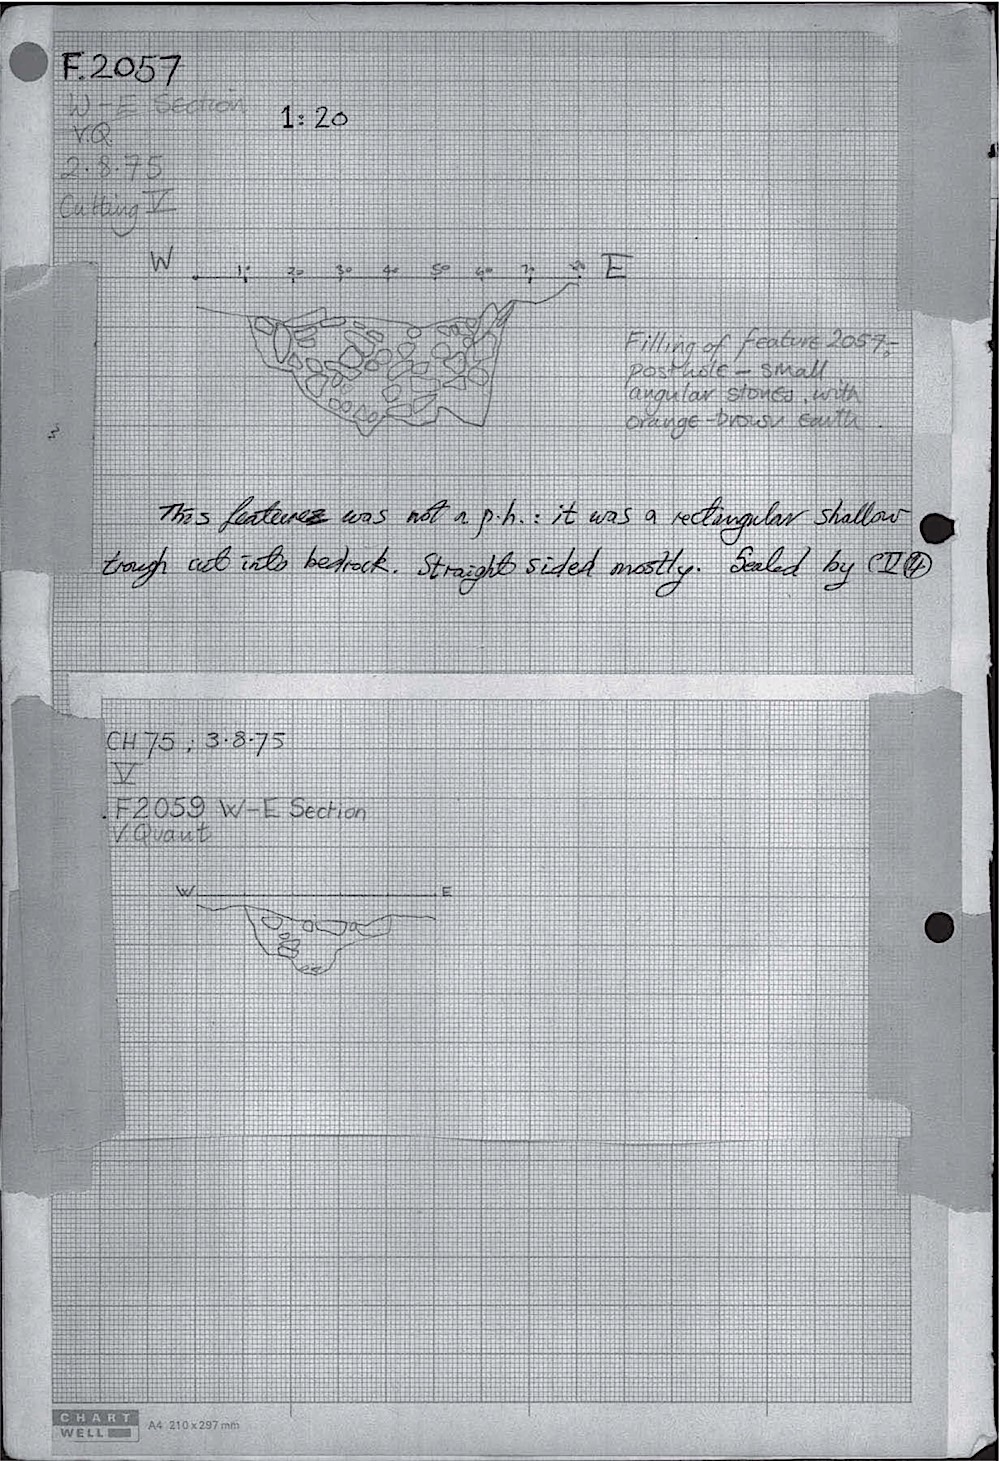 F.2057
W-E Section
1:20
V.Q.
2.8.75
Cutting V
W 10 20 30 40 50 60 70 80 E
Filling of feature 2057:-
posthole - small
angular stones, with
orange-brown earth.
This feature was not a p.h.: it was a rectangular shallow
trough cut into bedrock. Straight sided mostly. Sealed by CV④
CH 75 ; 3.8.75
V
F2059 W-E Section
V. Quant
W E
CHART
WELL
A4 210 x 297 mm